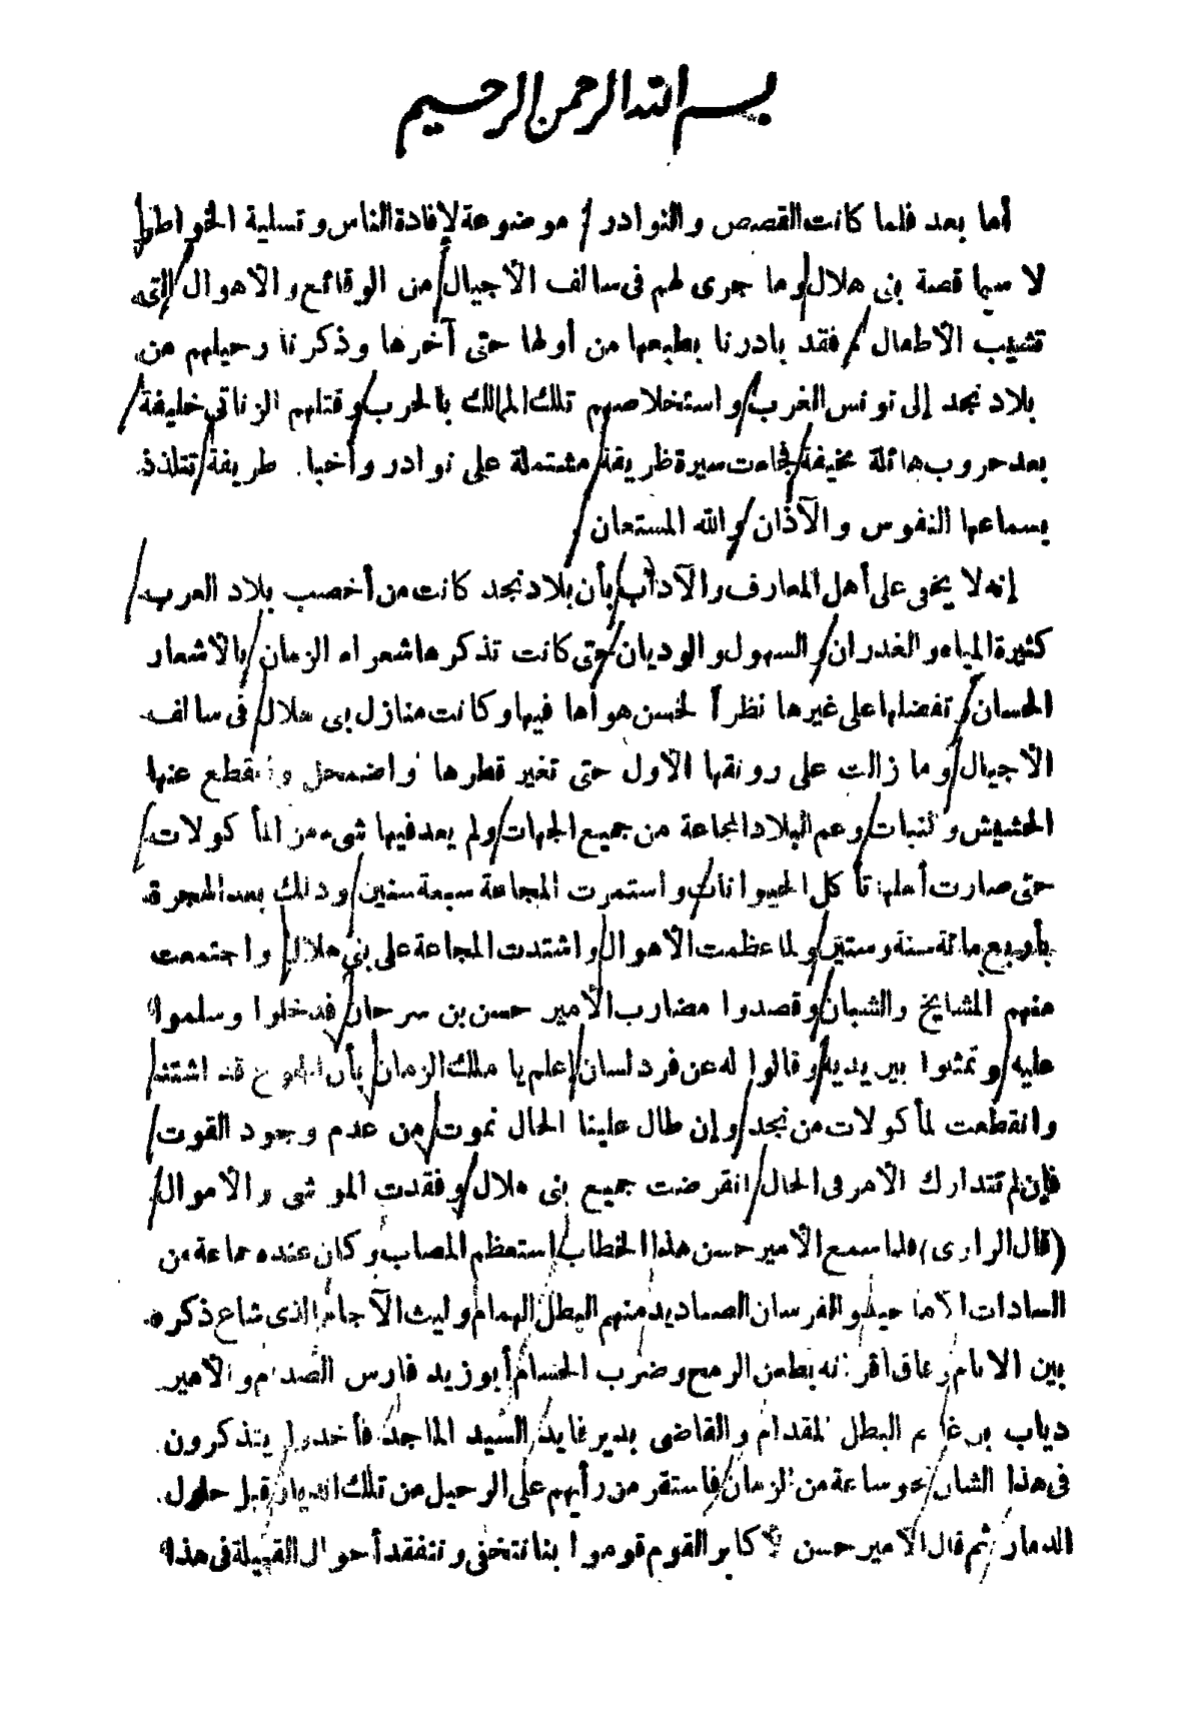 بسم الله الرحمن الرحيم
أما بعد فلما كانت القصص والنوادر موضوعة لإفادة الناس وتسلية الخواطر
لا سيما قصة بنى هلال وما جرى لهم فى سالف الأجيال من الوقائع والأهوال التى
تشيب الأطفال فقد بادرنا بطبعها من أولها حتى آخرها وذكرنا رحيلهم من
بلاد نجد إلى تونس الغرب واستخلاصهم تلك الممالك بالحرب وقتلهم الزناتى خليفة
بعد حروب هائلة مخيفة فجاءت سيرة ظريفة مشتملة على نوادر وأخبار طريفة تتلذذ
بسماعها النفوس والآذان والله المستعان
إنه لا يخفى على أهل المعارف والآداب بأن بلاد نجد كانت من أخصب بلاد العرب
كثيرة المياه والغدران والسهول والوديان حتى كانت تذكرها شعراء الزمان بالأشعار
الحسان وتفضلها على غيرها نظراً لحسن هوأها فيها وكانت منازل بنى هلال فى سالف
الأجيال وما زالت على رونقها الأول حتى تغير قطرها واضمحل وانقطع عنها
الحشيش والنبات وعم البلاد المجاعة من جميع الجهات ولم يعد فيها شىء من المأكولات
حتى صارت أهلها تأكل الحيوانات واستمرت المجاعة سبعة سنين وذلك بعد الهجرة
بأربع مائة سنة وستين ولما عظمت الأهوال واشتدت المجاعة على بنى هلال واجتمعت
منهم المشايخ والشبان وقصدوا مضارب الأمير حسن بن سرحان فدخلوا وسلموا
عليه وتمثلوا بين يديه وقالوا له عن فرد لسان إعلم يا ملك الزمان بأن الجوع قد اشتد
وانقطعت المأكولات من نجد وإن طال علينا الحال نموت من عدم وجود القوت
فإن لم تتدارك الأمر فى الحال انقرضت جميع بنى هلال وفقدت المواشى والأموال
(قال الراوى) فلما سمع الأمير حسن هذا الخطاب استعظم المصاب وكان عنده جماعة من
السادات الأماجيد والفرسان الصناديد منهم البطل الهمام وليث الآجام الذى شاع ذكره
بين الانام وفاق أقرانه بطعن الرمح وضرب الحسام أبو زيد فارس الصدام والأمير
دياب بن غانم البطل المقدام والقاضى بدير فايد السيد الماجد فأخذوا يتذكرون
فى هذا الشان نحو ساعة من الزمان فاستقر من رأيهم على الرحيل من تلك الديار قبل حلول
الدمار ثم قال الأمير حسن لأكابر القوم قوموا بنا نتخفى ونتفقد أحوال القبيلة فى هذا